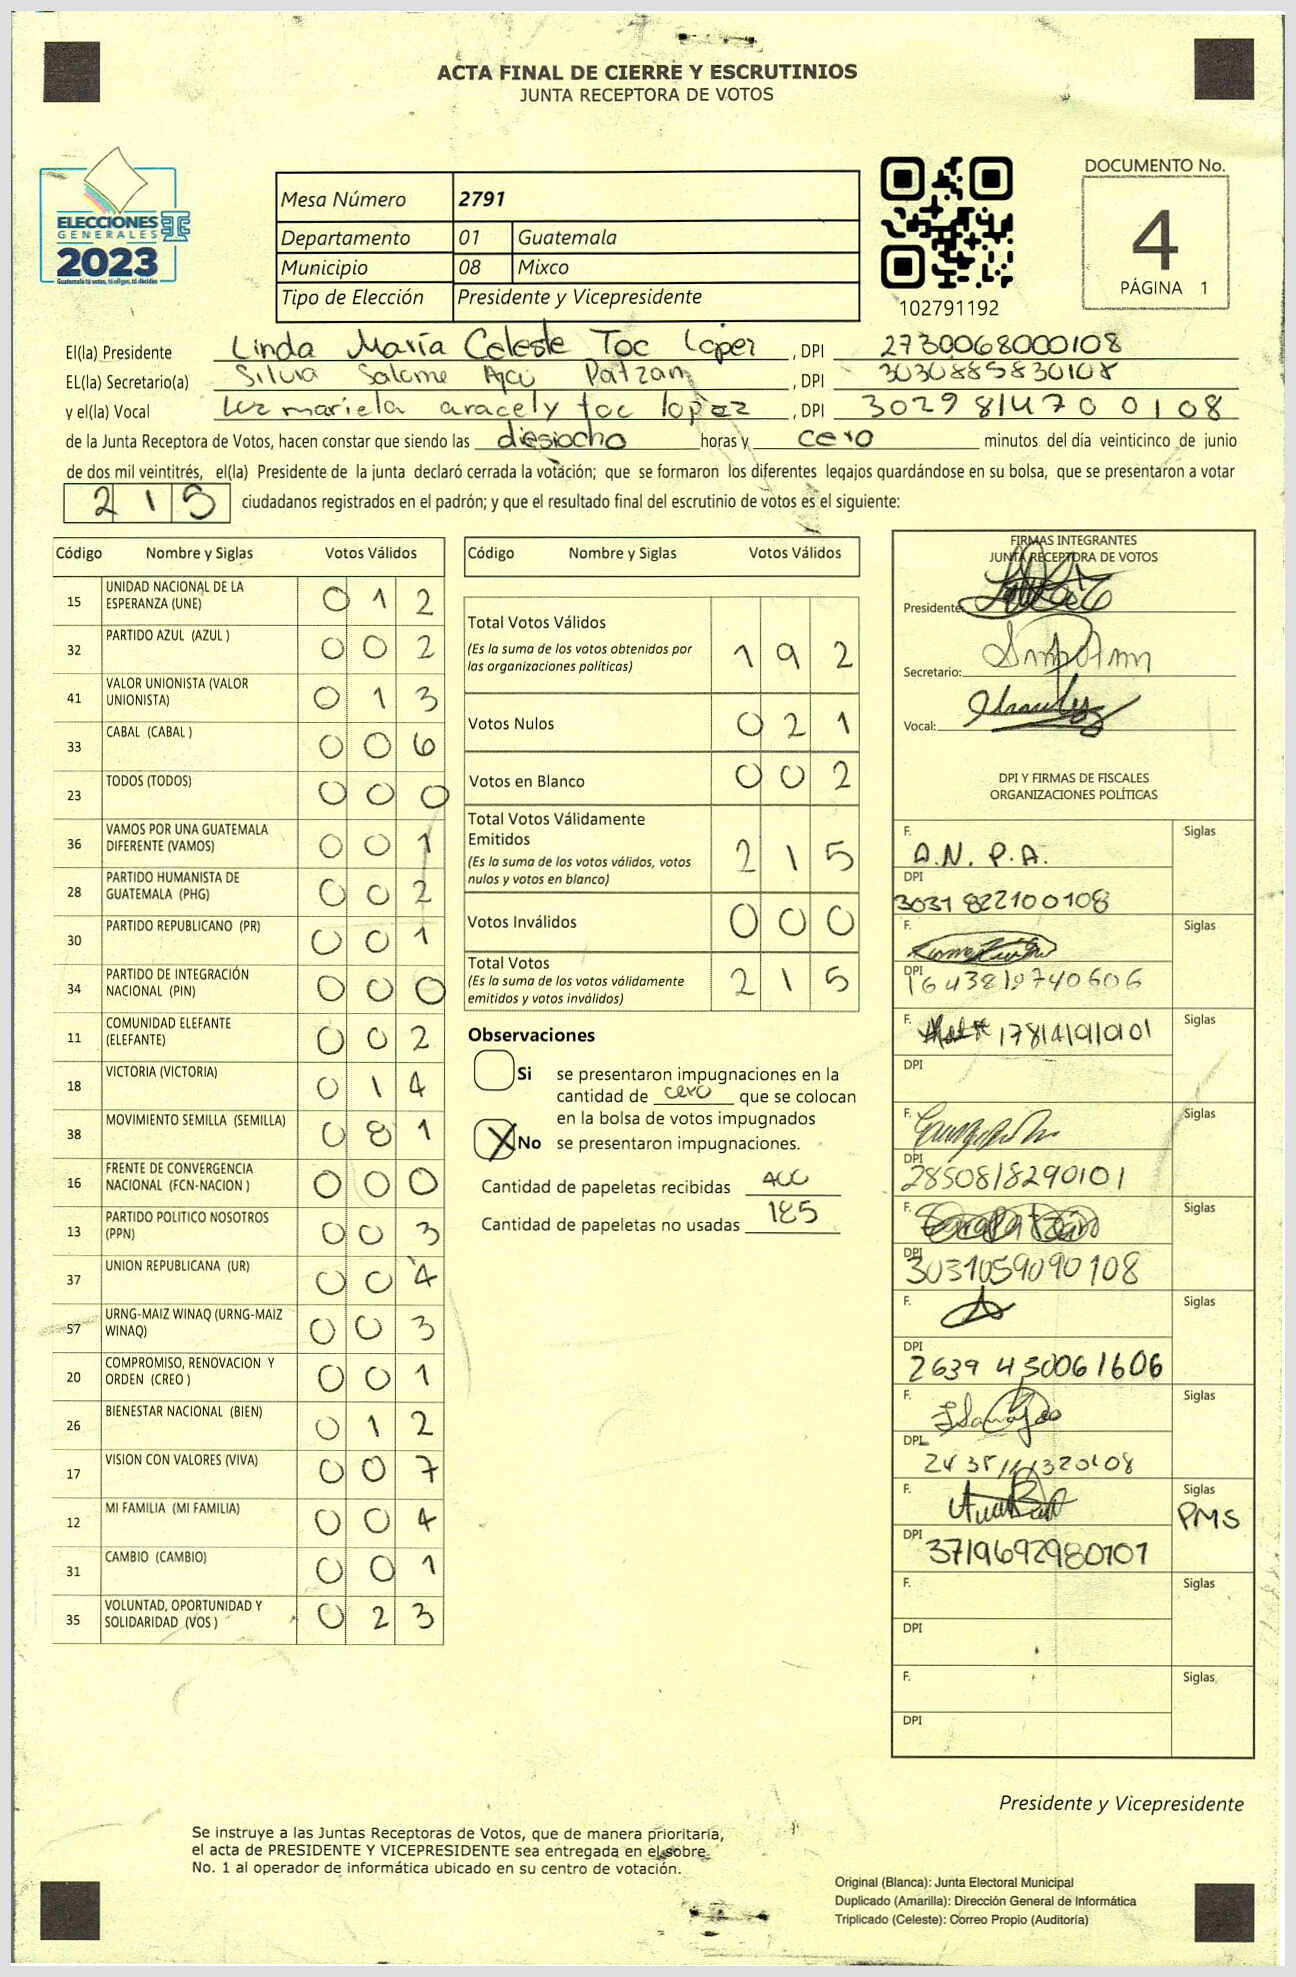 ACTA FINAL DE CIERRE Y ESCRUTINIOS
JUNTA RECEPTORA DE VOTOS
ELECCIONES
GENERALES
2023
Guatemala tú votas, tú eliges, tú decides
Mesa Número 2791
Departamento 01 Guatemala
Municipio 08 Mixco
Tipo de Elección Presidente y Vicepresidente
102791192
DOCUMENTO No.
4
PÁGINA 1
El(la) Presidente Linda María Celeste Toc López , DPI 2730068000108
EL(la) Secretario(a) Silvia Salome Ajcú Patzan , DPI 3030885830108
y el(la) Vocal luz mariela aracely toc lopez , DPI 3029814700108
de la Junta Receptora de Votos, hacen constar que siendo las diesiocho horas y cero minutos del día veinticinco de junio
de dos mil veintitrés, el(la) Presidente de la junta declaró cerrada la votación; que se formaron los diferentes legajos quardándose en su bolsa, que se presentaron a votar
215 ciudadanos registrados en el padrón; y que el resultado final del escrutinio de votos es el siguiente:
Código Nombre y Siglas Votos Válidos
15 UNIDAD NACIONAL DE LA ESPERANZA (UNE) 012
32 PARTIDO AZUL (AZUL ) 002
41 VALOR UNIONISTA (VALOR UNIONISTA) 013
33 CABAL (CABAL ) 006
23 TODOS (TODOS) 000
36 VAMOS POR UNA GUATEMALA DIFERENTE (VAMOS) 001
28 PARTIDO HUMANISTA DE GUATEMALA (PHG) 002
30 PARTIDO REPUBLICANO (PR) 001
34 PARTIDO DE INTEGRACIÓN NACIONAL (PIN) 000
11 COMUNIDAD ELEFANTE (ELEFANTE) 002
18 VICTORIA (VICTORIA) 014
38 MOVIMIENTO SEMILLA (SEMILLA) 081
16 FRENTE DE CONVERGENCIA NACIONAL (FCN-NACION ) 000
13 PARTIDO POLITICO NOSOTROS (PPN) 003
37 UNION REPUBLICANA (UR) 004
57 URNG-MAIZ WINAQ (URNG-MAIZ WINAQ) 003
20 COMPROMISO, RENOVACION Y ORDEN (CREO ) 001
26 BIENESTAR NACIONAL (BIEN) 012
17 VISION CON VALORES (VIVA) 007
12 MI FAMILIA (MI FAMILIA) 004
31 CAMBIO (CAMBIO) 001
35 VOLUNTAD, OPORTUNIDAD Y SOLIDARIDAD (VOS ) 023
Código Nombre y Siglas Votos Válidos
Total Votos Válidos 192
(Es la suma de los votos obtenidos por
las organizaciones políticas)
Votos Nulos 021
Votos en Blanco 002
Total Votos Válidamente
Emitidos 215
(Es la suma de los votos válidos, votos
nulos y votos en blanco)
Votos Inválidos 000
Total Votos 215
(Es la suma de los votos válidamente
emitidos y votos inválidos)
Observaciones
Si se presentaron impugnaciones en la
cantidad de cero que se colocan
en la bolsa de votos impugnados
X No se presentaron impugnaciones.
Cantidad de papeletas recibidas 400
Cantidad de papeletas no usadas 185
FIRMAS INTEGRANTES
JUNTA RECEPTORA DE VOTOS
Presidente:
Secretario:
Vocal:
DPI Y FIRMAS DE FISCALES
ORGANIZACIONES POLÍTICAS
F. A.N. P.A. Siglas
DPI 3031822100108
F. Siglas
DPI
F. Siglas
DPI
F. Siglas
DPI 2850818290101
F. Siglas
DPI 3031059090108
F. Siglas
DPI 2639430061606
F. Siglas
DPI
F. Siglas PMS
DPI 3719692980101
F. Siglas
DPI
F. Siglas
DPI
Presidente y Vicepresidente
Se instruye a las Juntas Receptoras de Votos, que de manera prioritaria,
el acta de PRESIDENTE Y VICEPRESIDENTE sea entregada en el sobre
No. 1 al operador de informática ubicado en su centro de votación.
Original (Blanca): Junta Electoral Municipal
Duplicado (Amarilla): Dirección General de Informática
Triplicado (Celeste): Correo Propio (Auditoría)